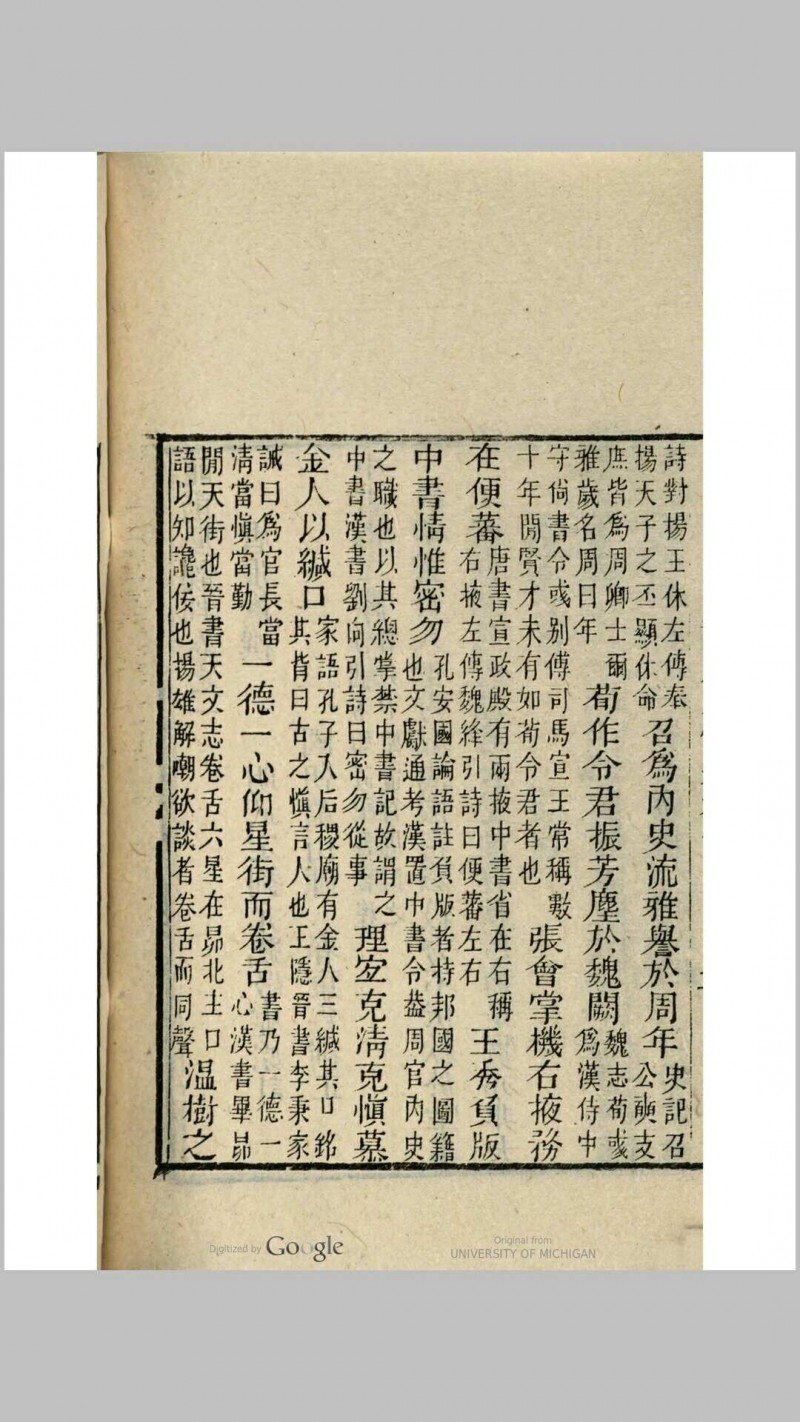 詩對揚王休左傳奉
揚天子之丕顯休命
召爲內史流雅譽於周年
史記召
公奭支
庶皆爲周卿士爾
雅歲名周曰年
荀作令君振芳塵於魏闕
魏志荀彧
爲漢侍中
守尚書令彧别傳司馬宣王常稱數
十年閒賢才未有如荀令君者也
張會掌機右掖務
在便蕃
唐書宣政殿有兩掖中書省在右稱
右掖左傳魏絳引詩曰便蕃左右
王秀負版
中書情惟密勿
孔安國論語註負版者持邦國之圖籍
也文獻通考漢置中書令葢周官內史
之職也以其總掌禁中書記故謂之
中書漢書劉向引詩曰密勿從事
理宏克淸克慎慕
金人以緘口
家語孔子入后稷廟有金人三緘其口銘
其背曰古之慎言人也王隱晉書李秉家
誡曰爲官長當
淸當慎當勤
一德一心仰星街而卷舌
書乃一德一
心漢書畢昴
閒天街也晉書天文志卷舌六星在昴北主口
語以知讒佞也揚雄解嘲欲談者卷舌而同聲
温樹之
Digitized by Google
Original from
UNIVERSITY OF MICHIGAN